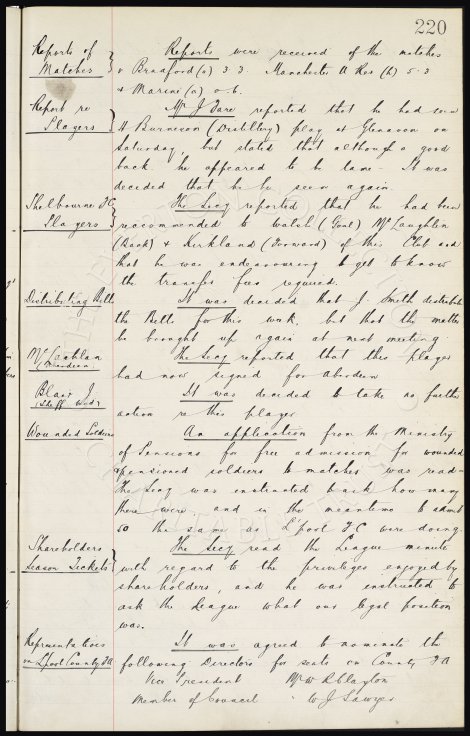 220
Reports of Matches
Reports were received of the matches
v Bradford (a) 3 3. Manchester U Res (h) 5-3
& Marine (a) 0-6.
Report re Players
Mr J Dare reported that he had seen
H Burneson (Distillery) play at Glenavon on
Saturday, but stated that although a good
back he appeared to be lame. It was
decided that he be seen again.
Shelbourne FC Players
The Secy reported that he had been
recommended to watch (Goal) McLaughlin
(Back) & Kirkland (Forward) of this Club and
that he was endeavouring to get to know
the transfer fees required.
Distributing Bills
It was decided that J. Smith distribute
the Bills for this week, but that the matter
be brought up again at next meeting
McLachlan (Aberdeen)
The Secy reported that this player
had now signed for Aberdeen
Blair J (Sheff Wed)
It was decided to take no further
action re this player
Wounded Soldiers
An application from the Ministry
of Pensions for free admission for wounded
pensioned soldiers to matches was read.
The Secy was instructed to ask how many
there were and in the meantime to admit
so the same as L'pool FC were doing.
Shareholders Season Tickets
The Secy read the League minute
with regard to the privileges enjoyed by
shareholders, and he was instructed to
ask the League what our legal position
was.
Representatives on L'pool County FA
It was agreed to nominate the
following Directors for seats on County FA
Vice President Mr W R Clayton
Member of Council " W J Sawyer